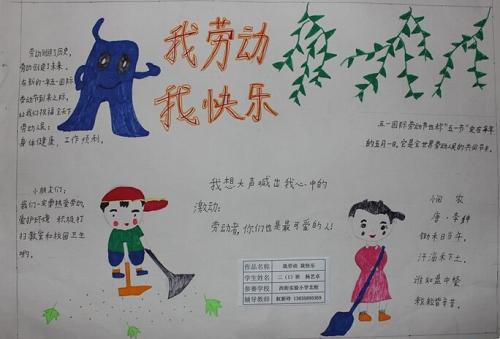 我劳动
我快乐
劳动创造了历史,
劳动创造了未来,
在新的一年五一国际
劳动节到来之际,
让我们祝福全天下
劳动人民:
身体健康、工作顺利。
五一国际劳动节也称"五一节"定在每年
的五月一日。它是全世界劳动人民的共同节日。
小朋友们:
我们一定要热爱劳动,
爱护环境 积极打
扫教室和校园卫生
哟。
我想大声喊出我心中的
激动:
劳动者,你们也是最可爱的人!
悯农
唐·李绅
锄禾日当午,
汗滴禾下土,
谁知盘中餐
粒粒皆辛苦。
作品名称 我劳动 我快乐
学生姓名 二(1)班 杨艺卓
参赛学校 西街实验小学北校
辅导教师